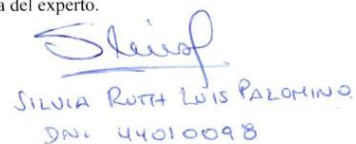 a del experto.
SILVIA RUTH LUIS PALOMINO
DNI 44010098